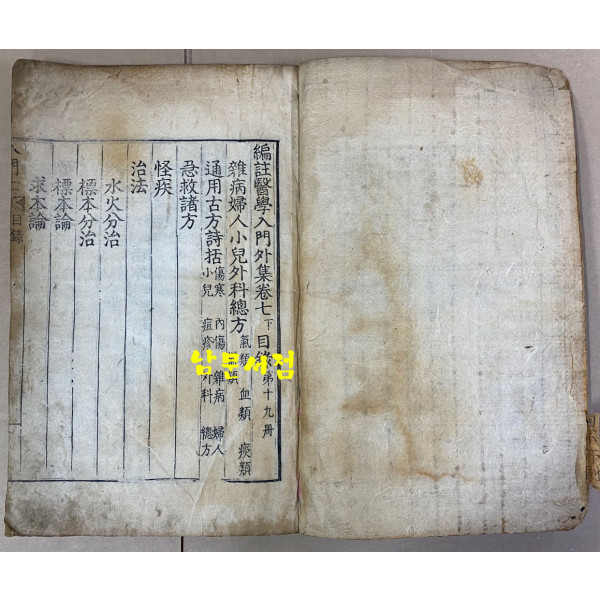 編註醫學入門外集卷七下目錄第十九冊
雜病婦人小兒外科總方 氣類 血類 痰類
通用古方詩括 傷寒 內傷 雜病 婦人
小兒 痘疹 外科 總方
急救諸方
怪疾
治法
水火分治
標本分治
標本論
求本論
入門
目錄
남문서점